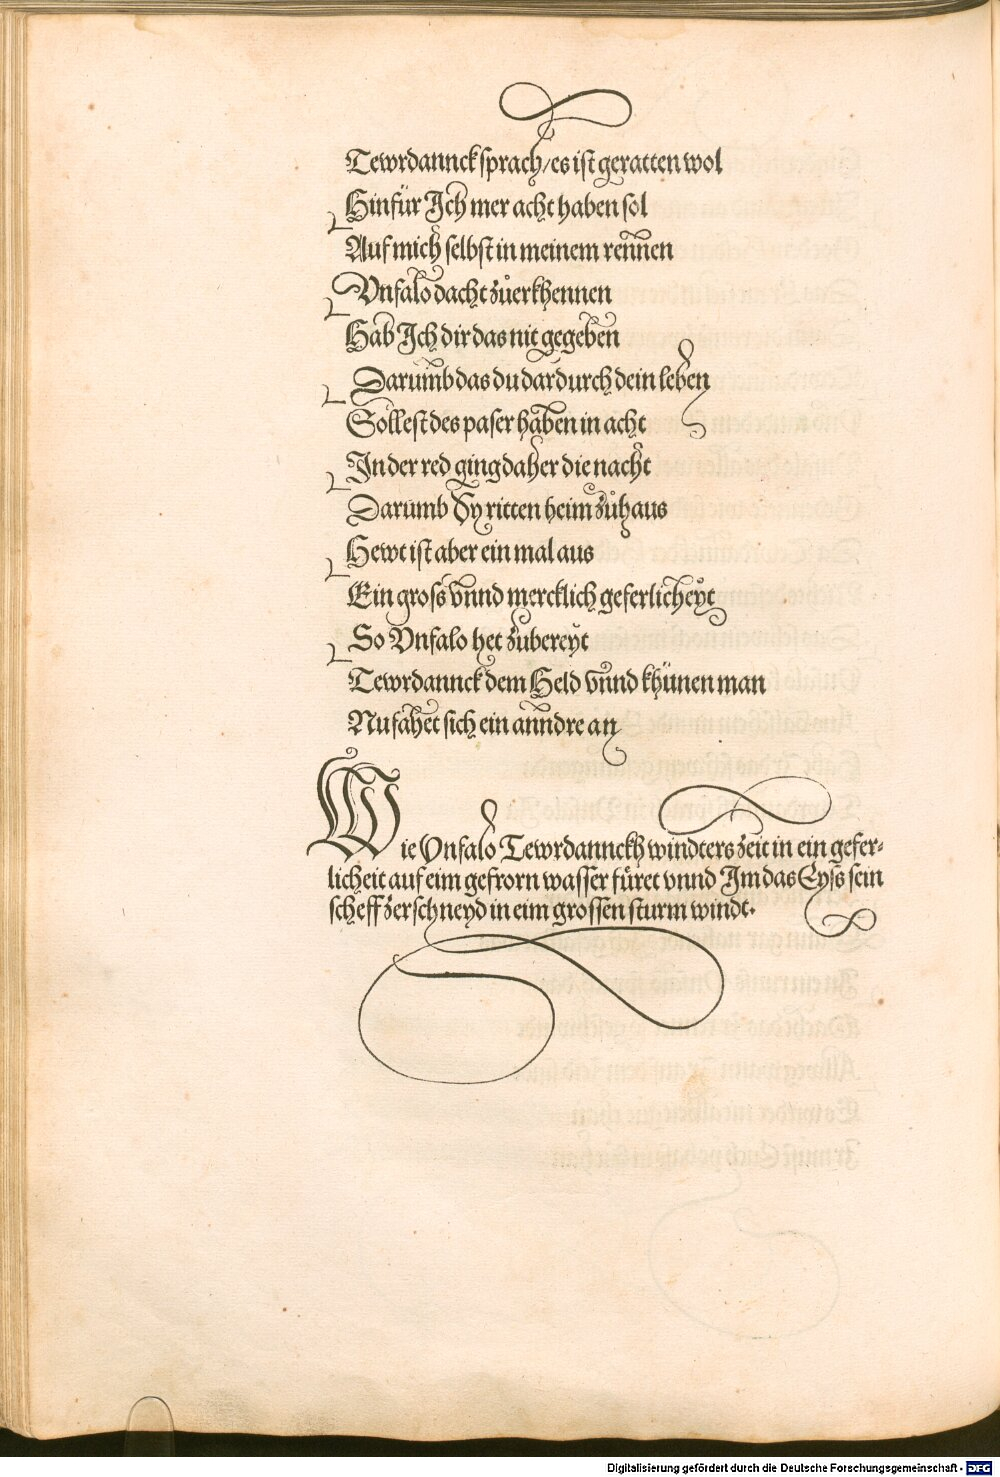 Tewrdannck sprach/ es ist geratten wol
Hinfür Ich mer acht haben sol
Auf mich selbst in meinem rennen
Vnfalo dacht zůerkhennen
Hab Ich dir das nit gegeben
Darumb das du dardurch dein leben
Sollest des paser haben in acht
In der red ging daher die nacht
Darumb Sy ritten heim zůhaus
Hewt ist aber ein mal aus
Ein gross vnnd mercklich geferlicheyt
So Vnfalo het zubereyt
Tewrdannck dem Held vnnd khünen man
Nu fahet sich ein anndre an
Wie Vnfalo Tewrdannckh windters zeit in ein gefer-
licheit auf eim gefrorn wasser füret vnnd Im das Eyss sein
scheff zerschneyd in eim grossen sturm windt.
Digitalisierung gefördert durch die Deutsche Forschungsgemeinschaft - DFG